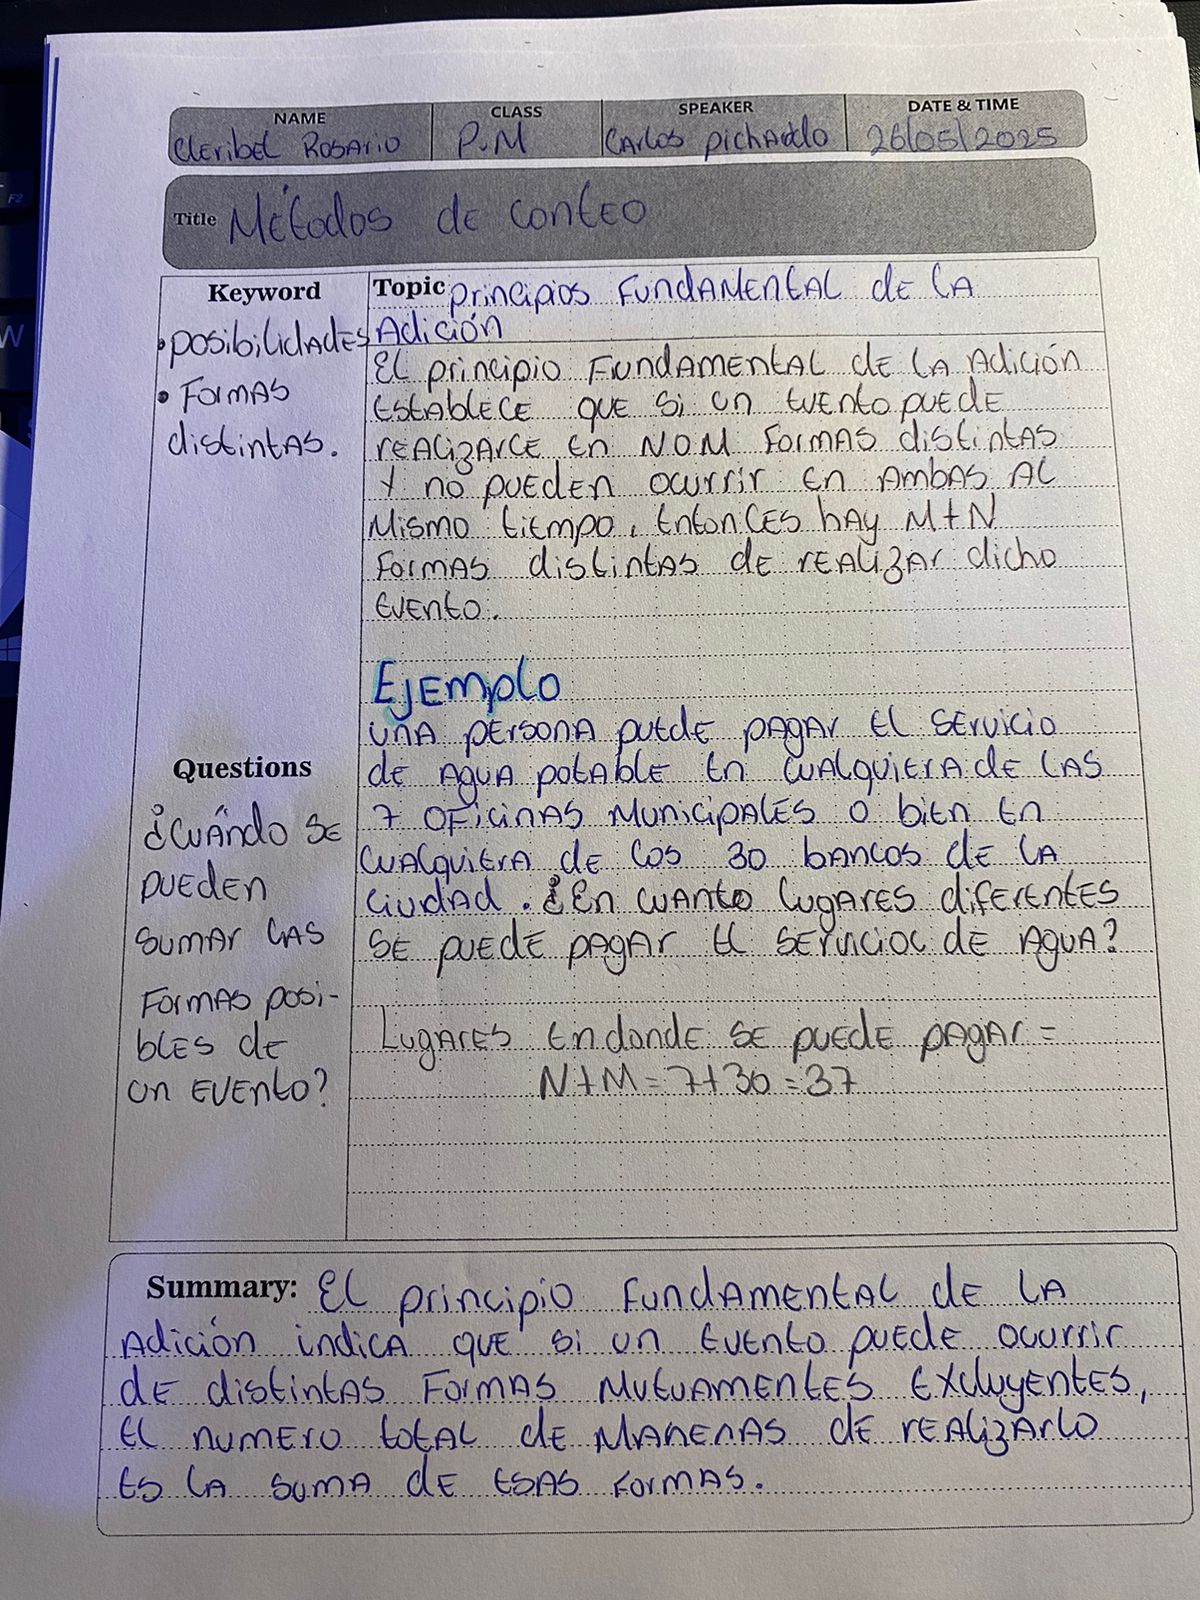 NAME CLASS SPEAKER DATE & TIME
Cleribel Rosario P.M Carlos Pichardo 26/05/2025
Title Métodos de conteo
Keyword
• posibilidades
• Formas
distintas.
Topic principios Fundamental de la
Adición
El principio Fundamental de la Adición
establece que si un evento puede
realizarce en N O M formas distintas
y no pueden ocurrir en ambas al
mismo tiempo, entonces hay M+N
formas distintas de realizar dicho
evento.
Ejemplo
una persona puede pagar el servicio
de agua potable en cualquiera de las
7 oficinas municipales o bien en
cualquiera de los 30 bancos de la
ciudad. ¿En cuanto lugares diferentes
se puede pagar el servicioc de agua?
Lugares en donde se puede pagar =
N+M=7+30=37
Questions
¿Cuándo se
pueden
sumar las
formas posi-
bles de
un evento?
Summary: El principio fundamental de la
Adición indica que si un evento puede ocurrir
de distintas formas mutuamentes excluyentes,
el numero total de maneras de realizarlo
es la suma de esas formas.
F2
W